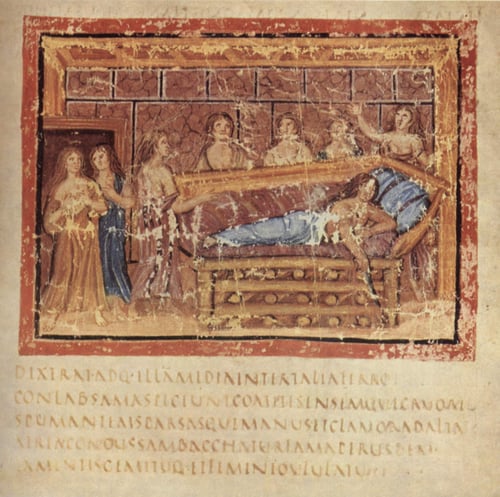 DIXERAT·ADQ·ILLAMMEDIAINTERTALIAFERRO
CONLAPSAMASPICIUNTCOMITESENSEMQUECRUORE
SPUMANTEMSPARSASQUEMANUSITCLAMORADALTA
ATRIACONCUSSAMBACCHATURFAMAPERURBEM
LAMENTISGEMITUQ·ETFEMINEOULULATU